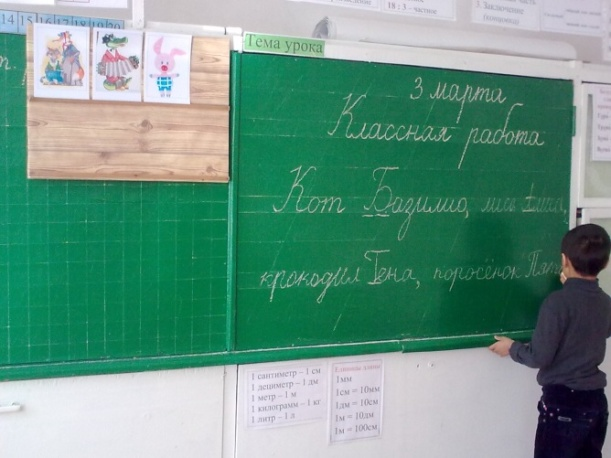 14 15 16 17 18 19 20
18 : 3 – частное
3. Заключение
Тема урока
3 марта
Классная работа
Кот Базилио, лиса Алиса,
крокодил Гена, поросёнок
1 сантиметр – 1 см
1 дециметр – 1 дм
1 метр – 1 м
1 килограмм – 1 кг
1 литр – 1 л
Единицы длины
1мм
1см = 10мм
1дм = 10см
1м = 10дм
1м = 100см